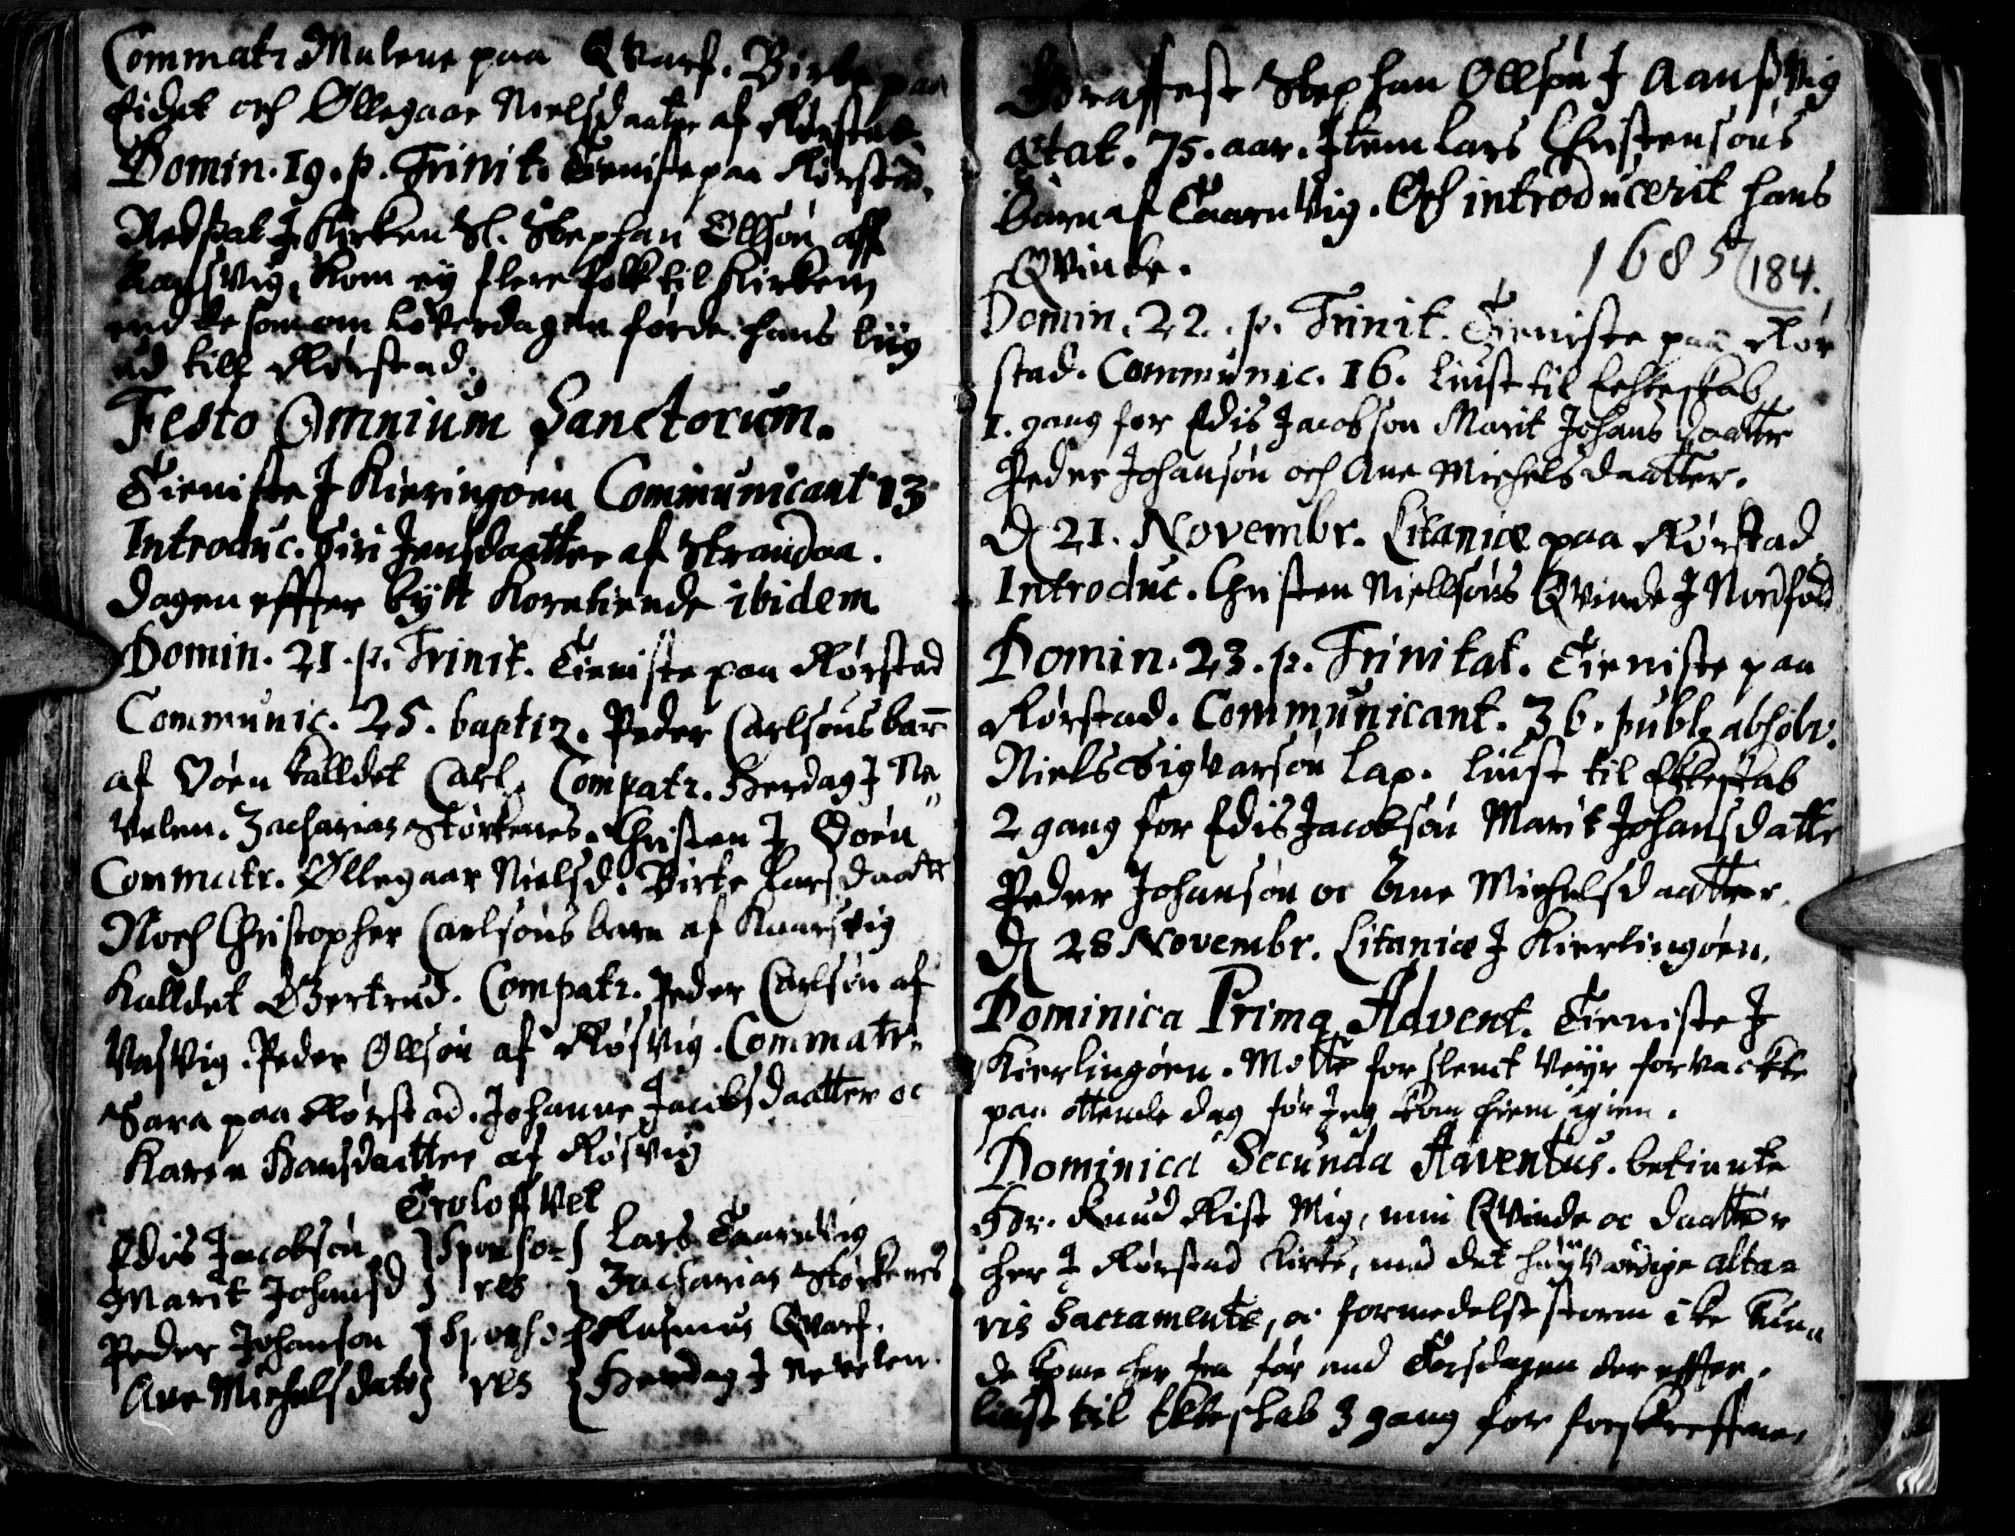 Commatr. Malene paa Qvarf. Birte paa
Eidet och Øllegaar Nielsdaatter af Rørstad.
Domin. 19. p. Trinit. Tieniste paa Rørstad.
Nedsat J Kirken Sl. Stephan Ollsøn aff
Aansvig, kom ey flere folk til Kirken
end de som om Løverdagen førde hans liig
ud till Rørstad.
Festo Omnium Sanctorum.
Tieniste J Kieringøen Communicant 13
Introduc. Siri Jensdaatter af Strandaa.
Dagen effter bytt Korntiende ibidem
Domin. 21. p. Trinit. Tieniste paa Rørstad
Communic. 25. baptiz. Peder Carlsøns barn
af Vøen kalldet Carl. Compatr. Herdag J Ne„
velen. Zacharias Størkenes. Christen J Vøen
Commatr. Øllegaar Nielsd. Birte Larsdaatt
Noch Christopher Carlsøns barn af Kaarsvig
Kalldet Giertrud. Compatr. Peder Carlsøn af
Vasvig. Peder Ollsøn af Røsvig. Commatr.
Sara paa Rørstad. Johanne Jacobsdaatter oc
Karen Hansdaatter af Røsvig
Troloffvet
Edis Jacobsøn } Sponso= { Lars Taarnvig
Marit Johansd } res { Zacharias Størkenes
Peder Johanson } Sponso { Rasmus Qvarf.
Ane Michelsdatt } res { Herdag J Nevelen.
Graffest Stephan Ollsøn J Aansvig
ætat. 75. aar. Item Lars Christensøns
barn af Taarnvig. Och introducerit hans
Qvinde.
1685
184.
Domin. 22. p. Trinit. Tieniste paa Rør
stad. Communic. 16. liust til Echteskab
1. gang for Edis Jacobson Marit Johans daatter
Peder Johansøn och Ane Michelsdaatter.
D 21. Novembr. Litaniæ paa Rørstad
Introduc. Christen Niellsøns Qvinde J Nordfold
Domin. 23. p. Trinitat. Tieniste paa
Rørstad. Communicant. 36. publ. absolv.
Niels Sigvarsøn Lap. liust til Ekteskab
2 gang for Edis Jacobsøn Marit Johansdatte
Peder Johansøn oc Ane Michelsdaatter.
D 28 Novembr. Litaniæ J Kierlingøen.
Dominica Prima Advent. Tieniste J
Kierlingøen. Motte for slemt Veyr forvackte
paa ottende dag før Jeg kom hiem igien.
Dominica Secunda Adventus. betiente
Hr. Knud Rist Mig, min Qvinde oc daatter
her J Rørstad Kirke, med det høyværdige alta=
ris Sacramente, oc formedelst storm ike kun„
de kome her fra før end Torsdagen der effter.
liust til Ekteskab 3 gang for forskreffne.